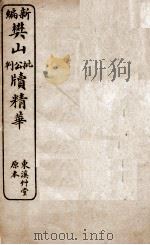 新編
樊山
批公判
牘精華
東溪艸堂
原本